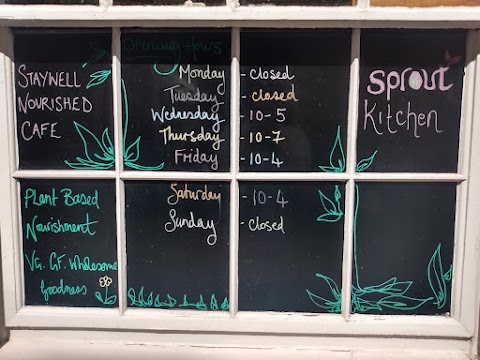 STAYWELL
NOURISHED
CAFE
Opening Hours
Monday - closed
Tuesday - closed
Wednesday - 10-5
Thursday - 10-7
Friday - 10-4
Saturday - 10-4
Sunday - closed
sprout
Kitchen
Plant Based
Nourishment
VG. GF. Wholesome
Goodness